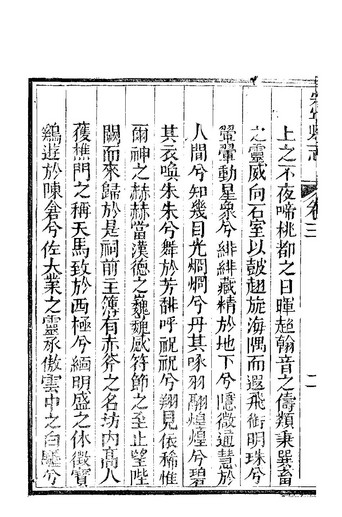 上之不夜啼桃都之日暉超翰音之儔類秉巽畜
之靈威向石室以鼓翅旋海隅而遐飛銜明珠兮
翬翬動星象兮緋緋藏精於地下兮隱微通慧於
人間兮知幾目光烱烱兮丹其喙羽翮煌煌兮碧
其衣喚朱朱兮舞於芳誹呼祝祝兮翔見依稀惟
爾神之赫赫當漢德之巍巍感符節之至止望陛
闕而來歸於是祠前主簿有赤斧之名坊內髙人
獲樵門之稱天馬致於西極兮緬明盛之休徵寶
鷄遊於陳倉兮佐大業之靈承傲雲中之白驢兮
卷三
二